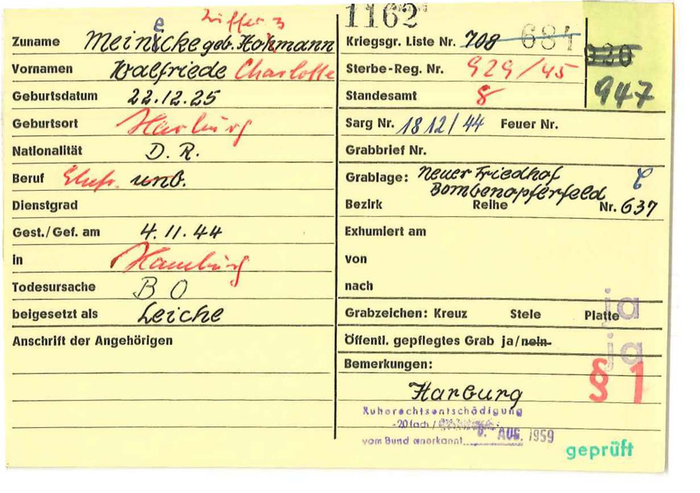 Ziffer 3
1162
Zuname Meinecke geb. Hohmann
Kriegsgr. Liste Nr. 708 684
920
Vornamen Walfriede Charlotte
Sterbe-Reg. Nr. 929/45
947
Geburtsdatum 22.12.25
Standesamt 8
Geburtsort Harburg
Sarg Nr. 1812/44 Feuer Nr.
Nationalität D. R.
Grabbrief Nr.
Beruf Ehefr. unb.
Grablage: Neuer Friedhof
Bombenopferfeld
Dienstgrad
Bezirk Reihe Nr. 637
Gest./Gef. am 4.11.44
Exhumiert am
in Hamburg
von
Todesursache B O
nach
beigesetzt als Leiche
Grabzeichen: Kreuz Stele Platte
ja
Anschrift der Angehörigen
Öffentl. gepflegtes Grab ja/nein
Bemerkungen:
§ 1
Harburg
Ruherechtsentschädigung
-20fach/
vom Bund anerkannt AUG. 1959
geprüft